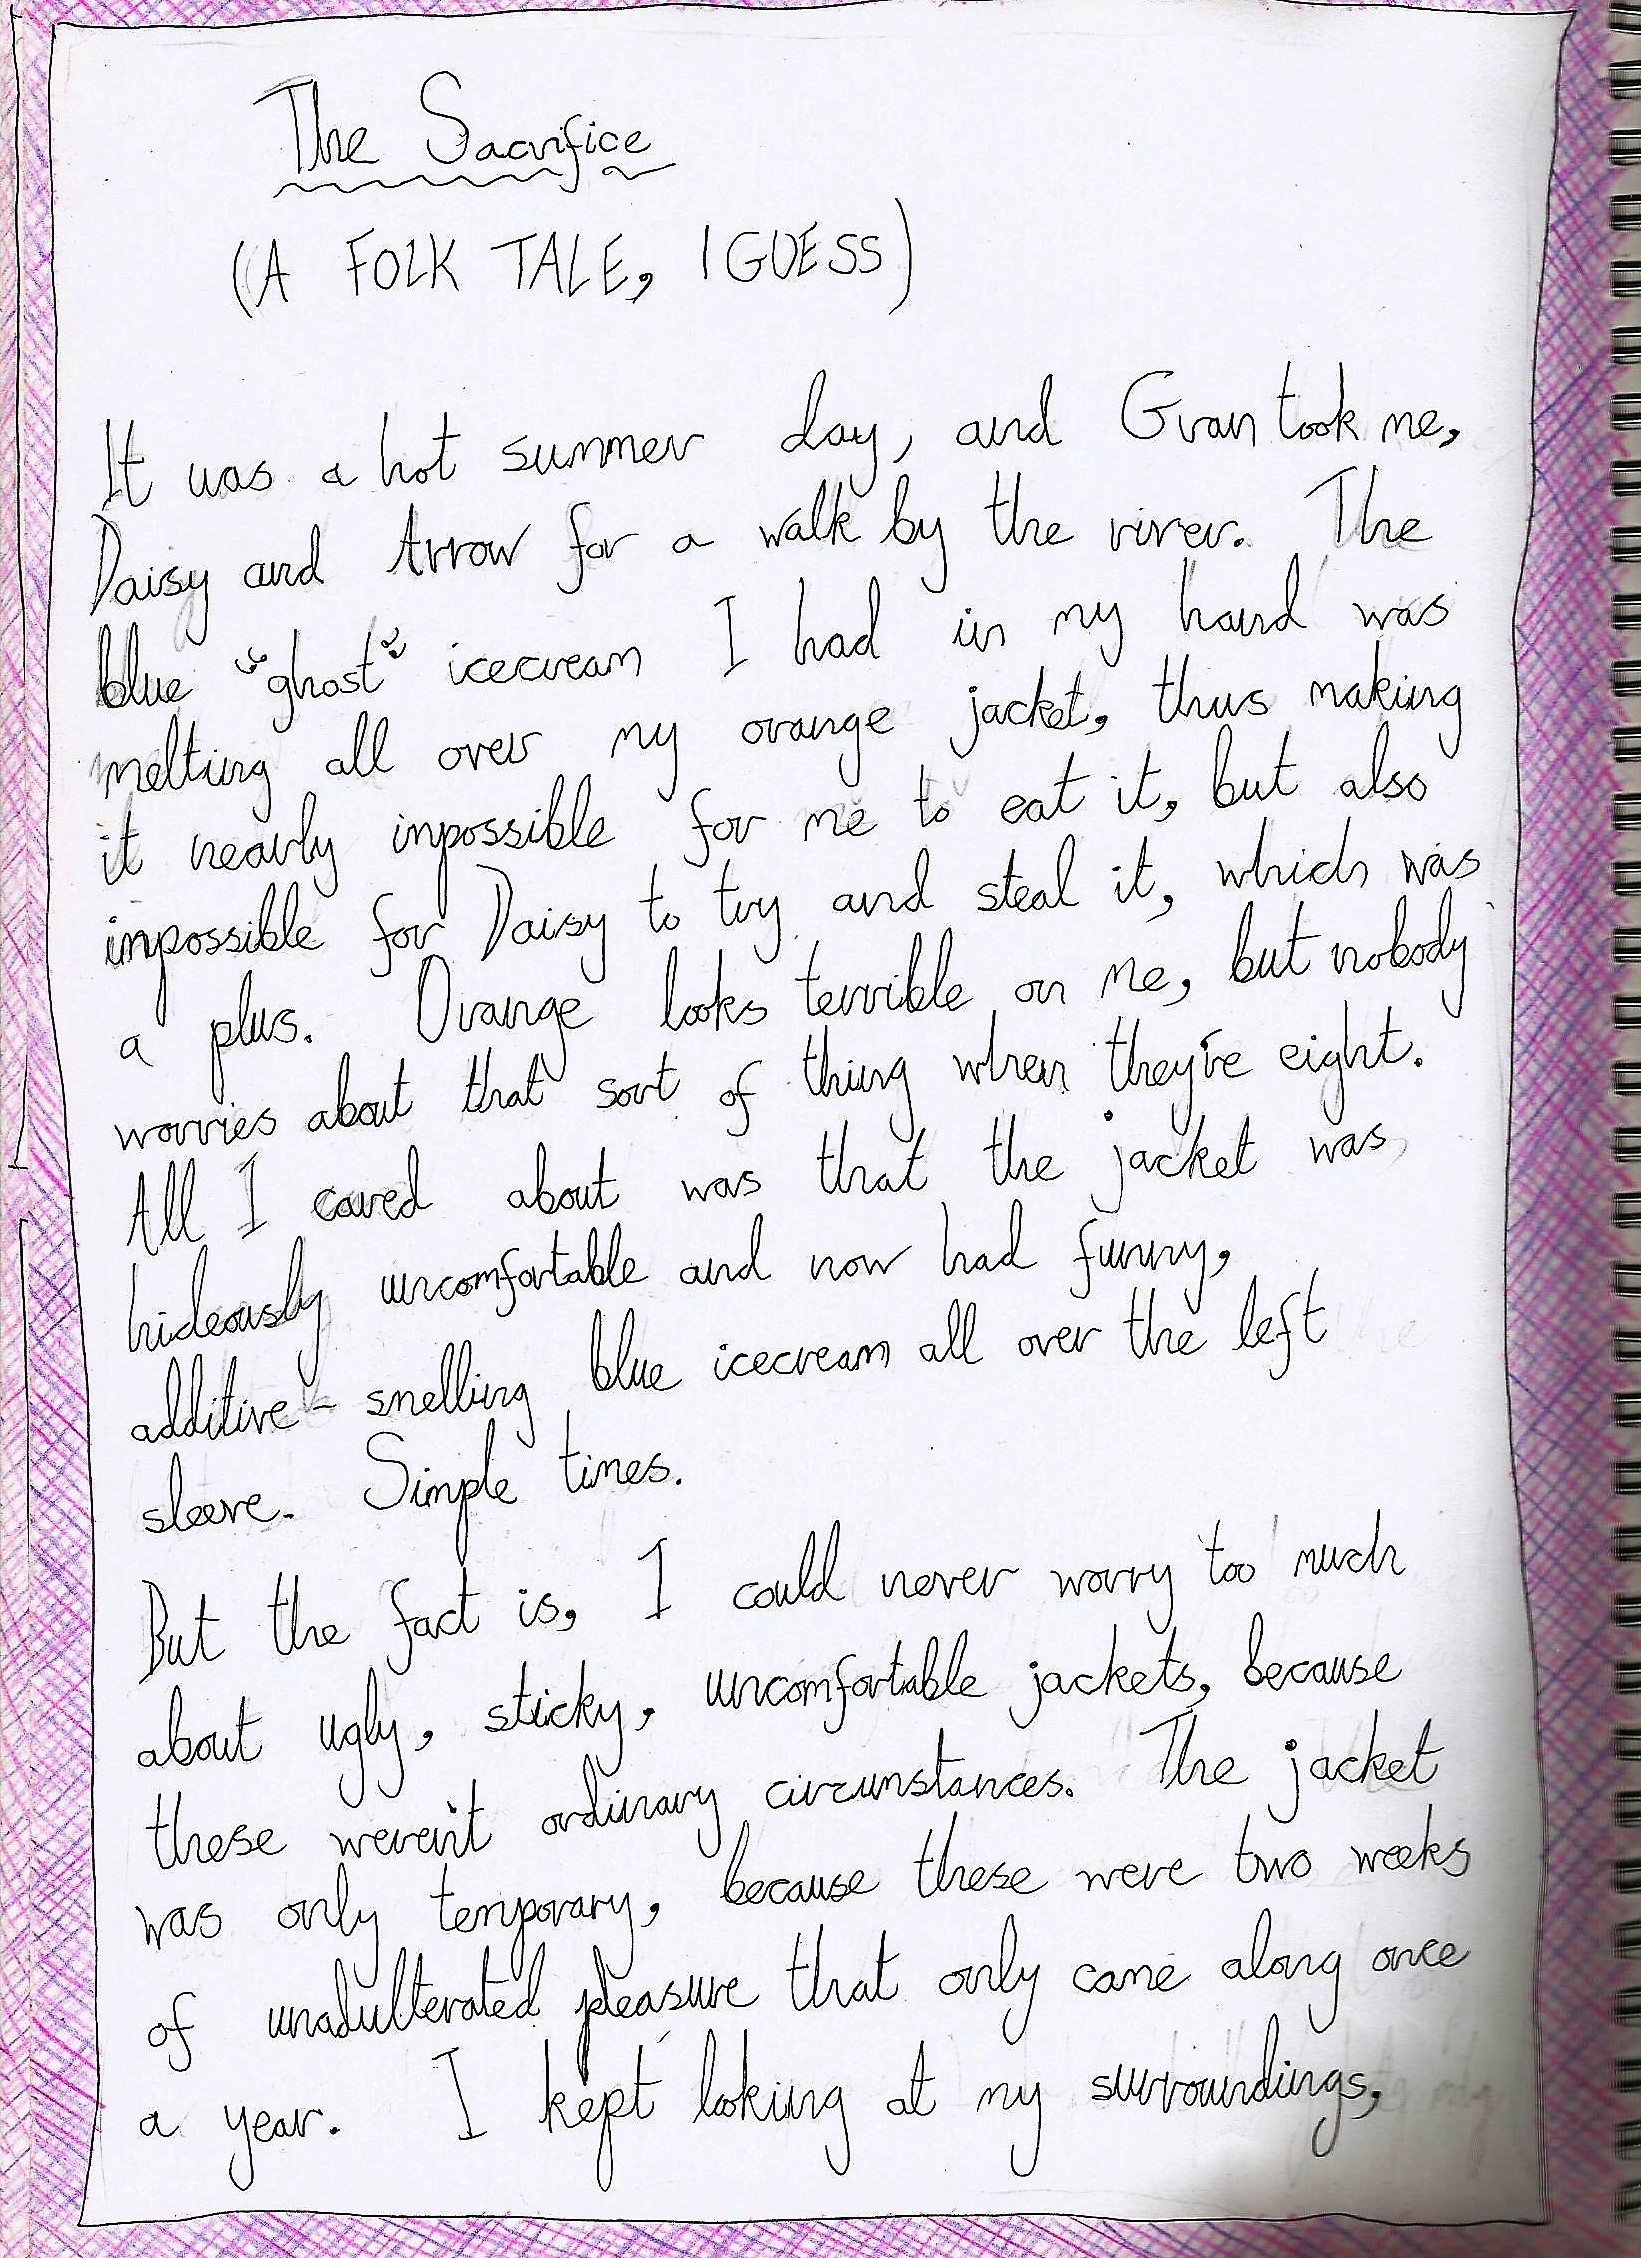 The Sacrifice
(A FOLK TALE, I GUESS)
It was a hot summer day, and Gran took me,
Daisy and Arrow for a walk by the river. The
blue "ghost" icecream I had in my hand was
melting all over my orange jacket, thus making
it nearly impossible for me to eat it, but also
impossible for Daisy to try and steal it, which was
a plus. Orange looks terrible on me, but nobody
worries about that sort of thing when they're eight.
All I cared about was that the jacket was
hideously uncomfortable and now had funny,
additive-smelling blue icecream all over the left
sleeve. Simple times.
But the fact is, I could never worry too much
about ugly, sticky, uncomfortable jackets, because
these weren't ordinary circumstances. The jacket
was only temporary, because these were two weeks
of unadulterated pleasure that only came along once
a year. I kept looking at my surroundings,